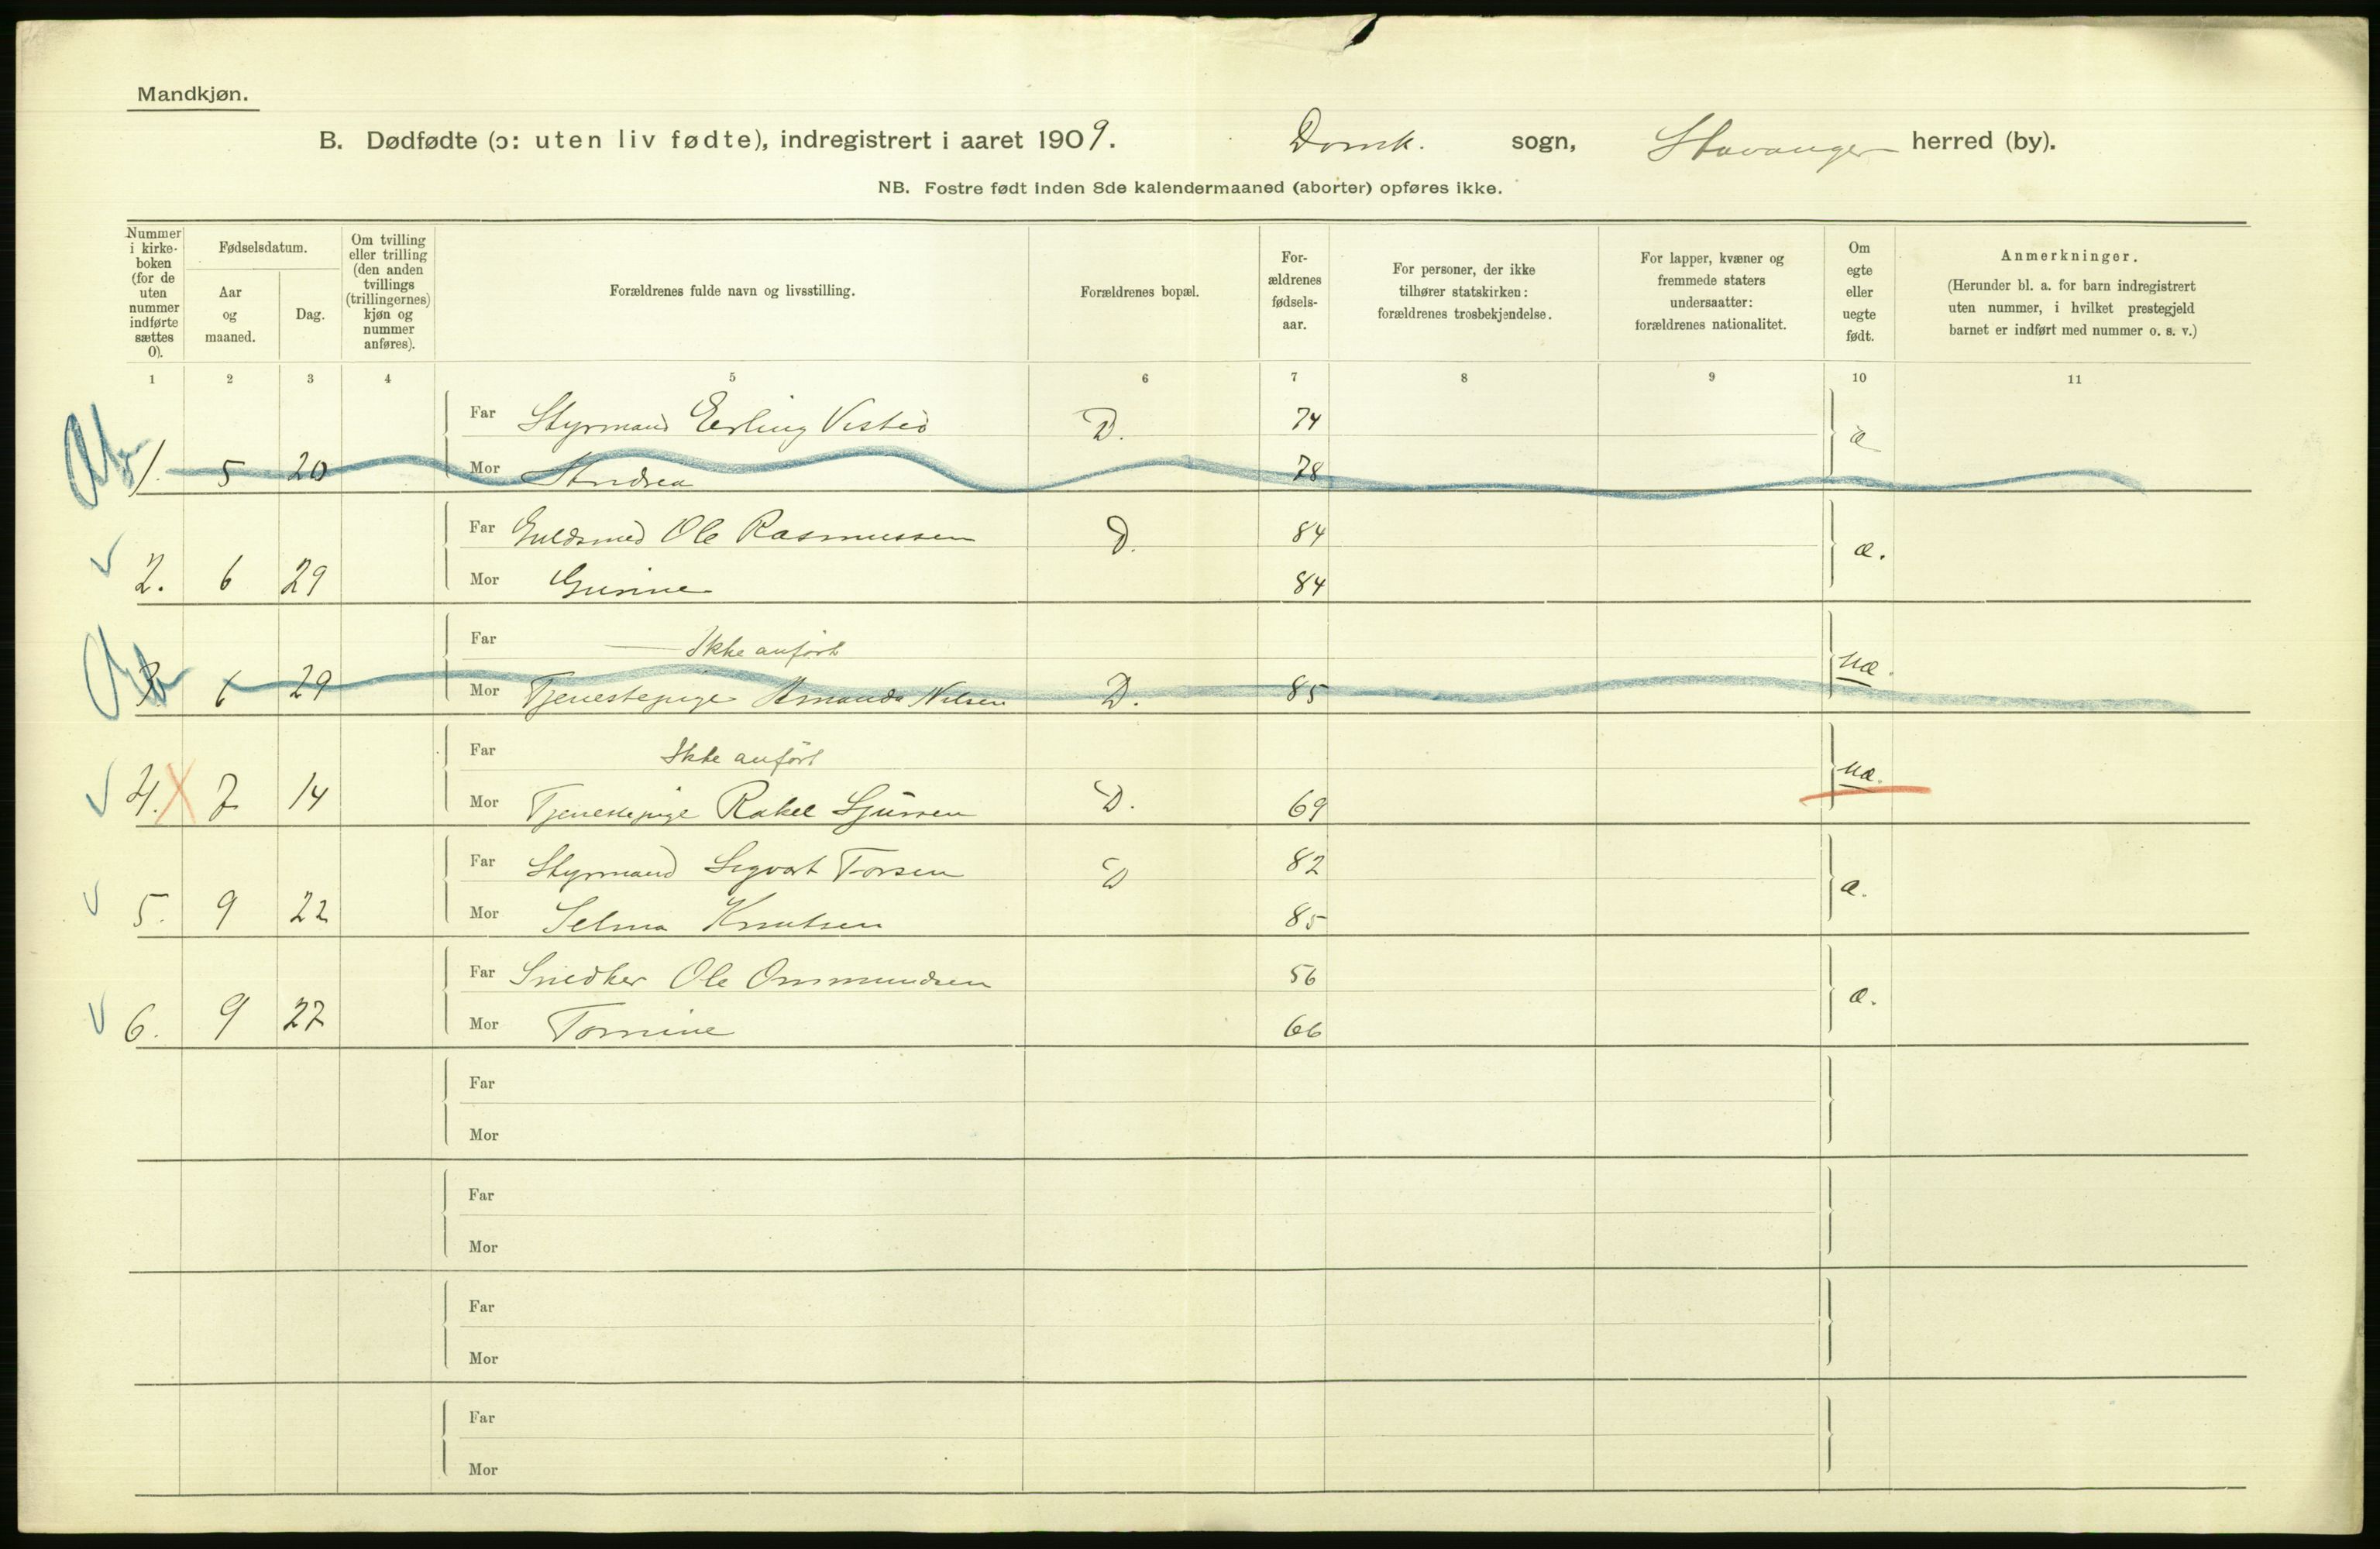 Mandkjøn.
B. Dødfødte (ɔ: uten liv fødte), indregistrert i aaret 1909. Domk. sogn, Stavanger herred (by).
NB. Fostre født inden 8de kalendermaaned (aborter) opføres ikke.
Nummer i kirke-boken (for de uten nummer indførte sættes 0).
Fødselsdatum.
Aar og maaned.
Dag.
Om tvilling eller trilling (den anden tvillings (trillingernes) kjøn og nummer anføres).
Forældrenes fulde navn og livsstilling.
Forældrenes bopæl.
For-ældrenes fødsels-aar.
For personer, der ikke tilhører statskirken: forældrenes trosbekjendelse.
For lapper, kvæner og fremmede staters undersaatter: forældrenes nationalitet.
Om egte eller uegte født.
Anmerkninger.
(Herunder bl. a. for barn indregistrert uten nummer, i hvilket prestegjeld barnet er indført med nummer o. s. v.)
1 2 3 4 5 6 7 8 9 10 11
Far Styrmand Erling Visted D. 74 æ
Ab 1. 5 20 Mor Andrea 78
Far Guldsmed Ole Rasmussen D. 84 æ.
2. 6 29 Mor Gurine 84
Far Ikke anført uæ.
Ab 3 6 29 Mor Tjenestepige Amanda Nilsen D. 85
Far Ikke anført uæ.
4. 7 14 Mor Tjenestepige Rakel Sjursen D. 69
Far Styrmand Sigvart Torsen D 82 æ.
5. 9 22 Mor Selma Knutsen 85
Far Snedker Ole Ommundsen 56 æ.
6. 9 22 Mor Tomine 66
Far
Mor
Far
Mor
Far
Mor
Far
Mor